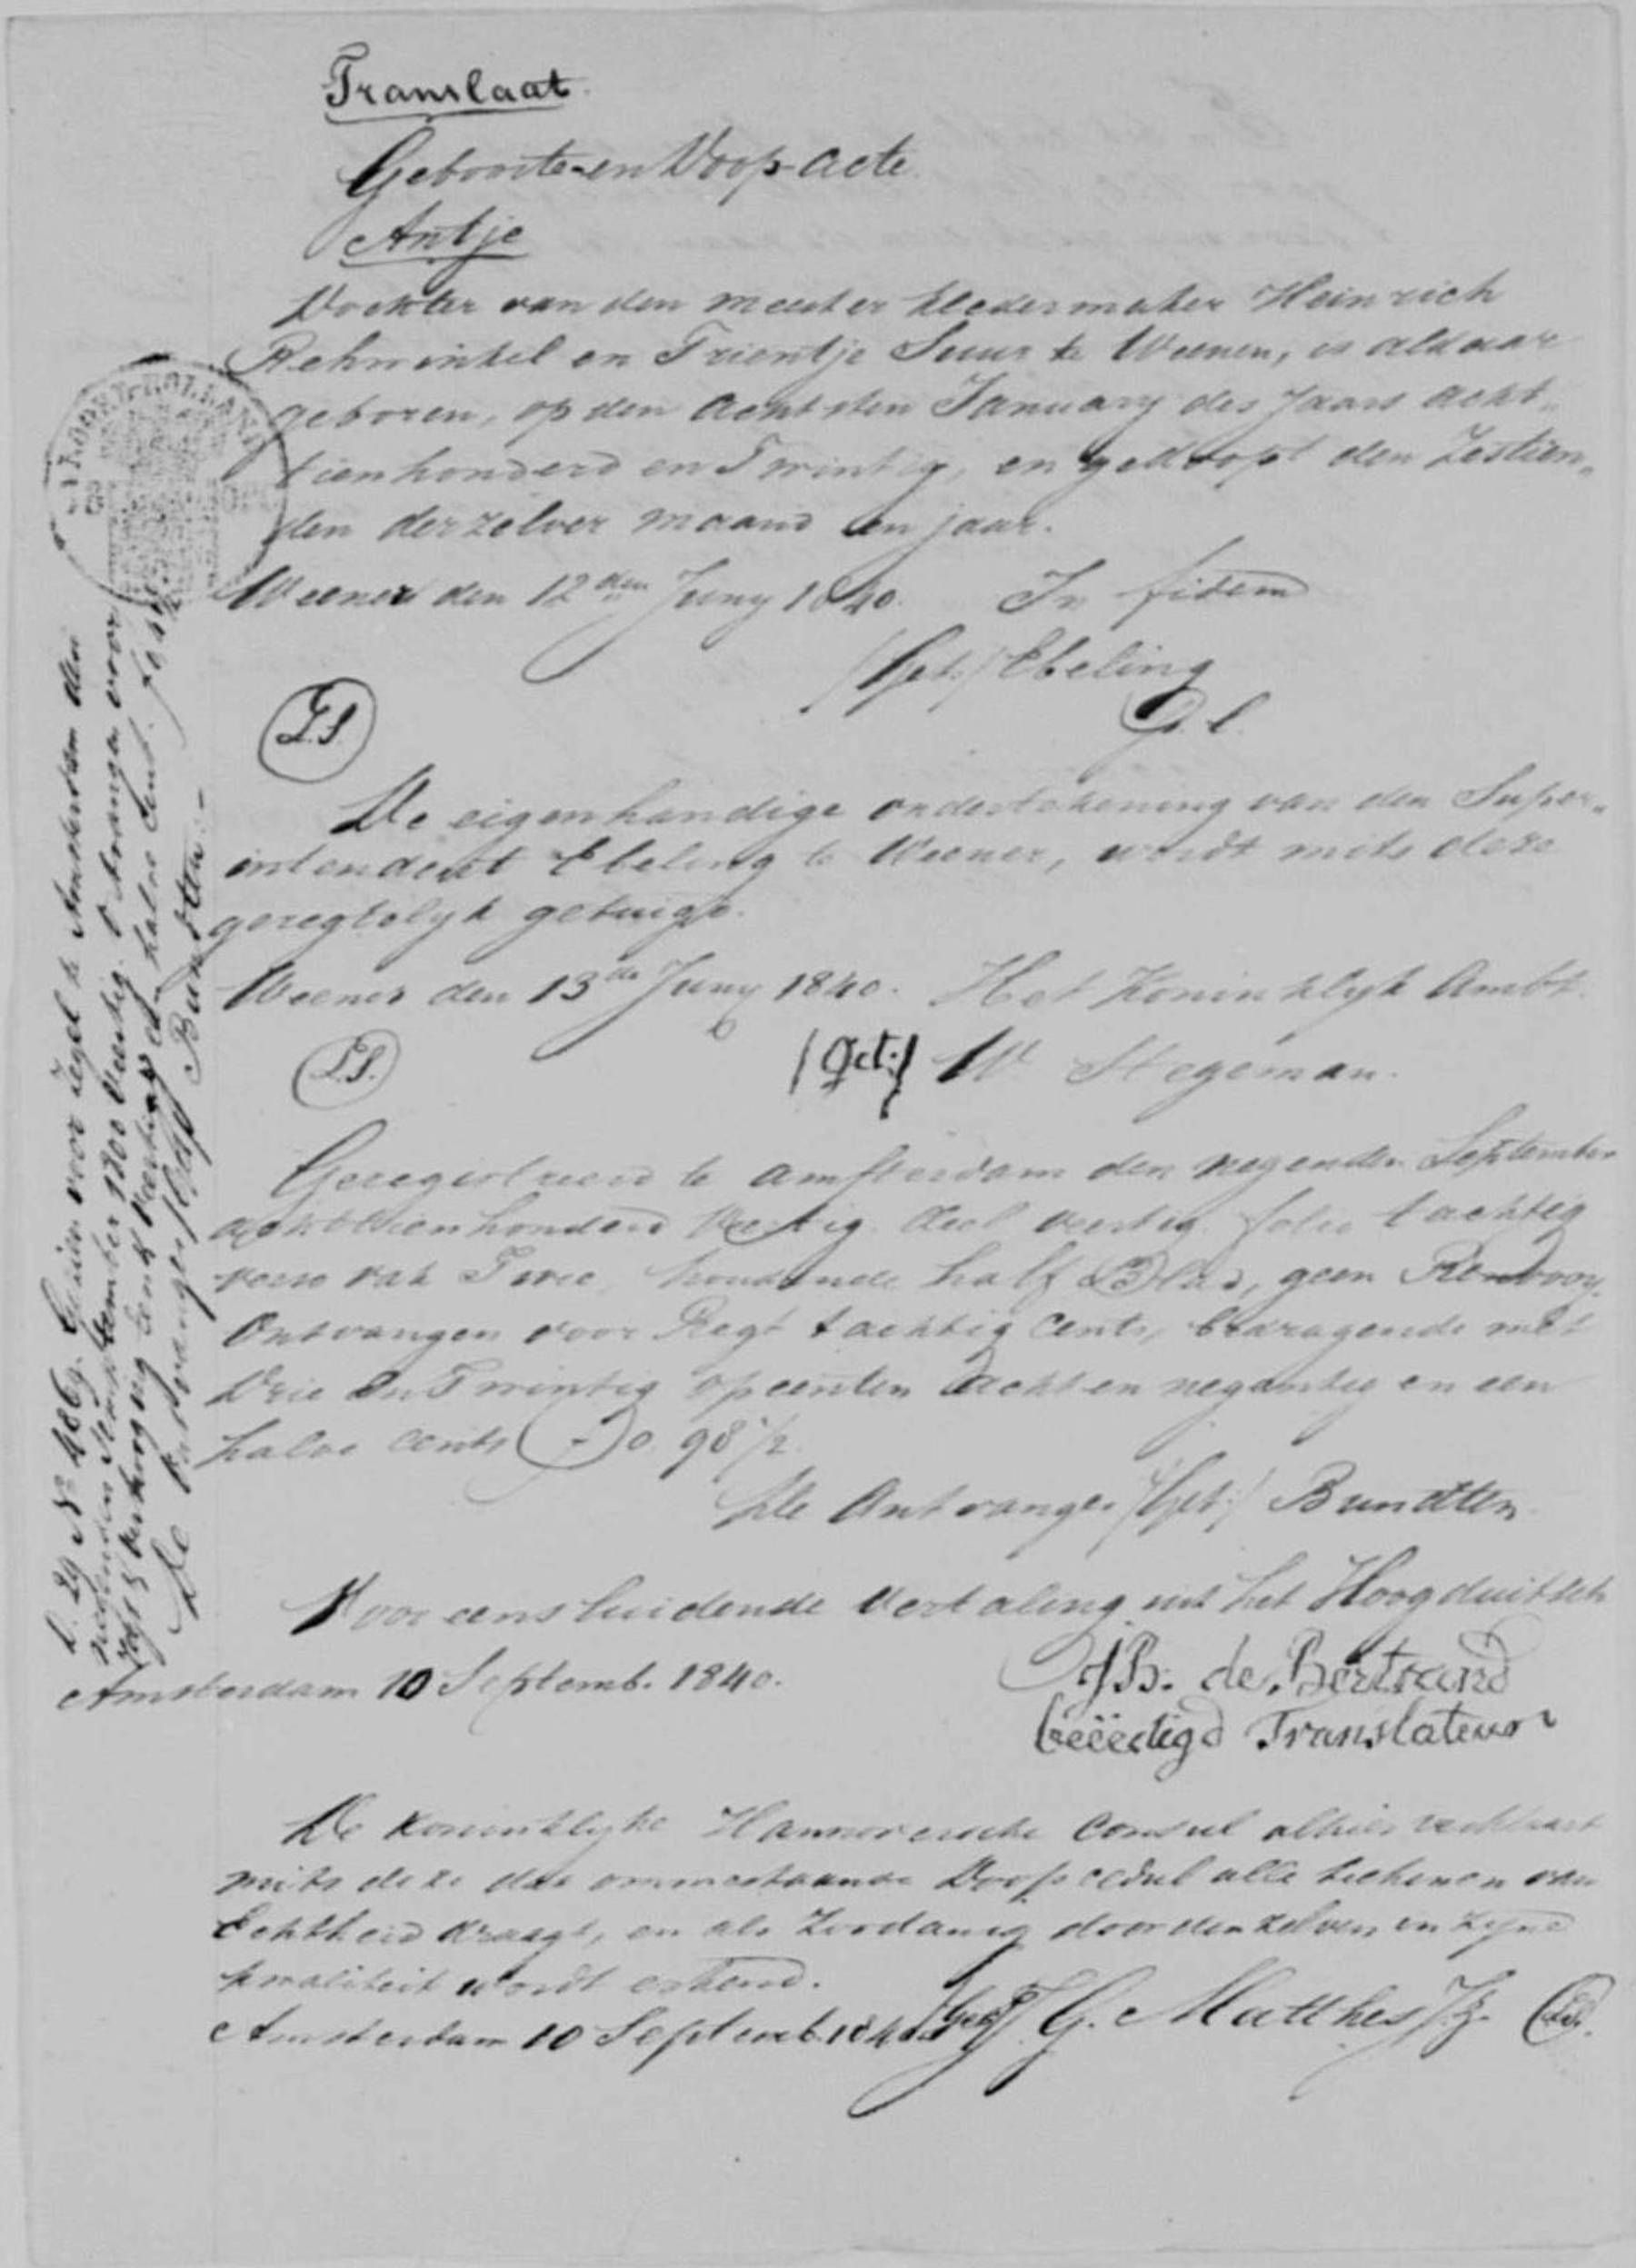 Translaat
Geboorte-en Doop-Acte
Antje
Dochter van den meester kledermaker Heinrich
Rehwinkel en Trientje Suur te Weener, is aldaar
geboren, op den achtsten January des Jaars acht-
tienhonderd en Twintig, en gedoopt den Zestien-
den derzelver maand en jaar.
Weener den 12den Juny 1840. In fidem
/Get:/ Ebeling
L.S.
De eigenhandige ondertekening van den Super-
intendent Ebeling te Weener, wordt mits deze
geregtelyk getuigd.
Weener den 13de Juny 1840. Het Koninklyk Ambt.
L.S. /Get:/ W Stegeman.
Geregistreerd te Amsterdam den negenden September
achttienhonderd Veertig. deel veertig folio tachtig
verso vak Twee, houdende half Blad, geen Renvooy.
Ontvangen voor Regt tachtig Cents, bedragende met
Drie en Twintig opcenten Acht en negentig en een
halve cents 0 98 1/2
De Ontvanger /Get:/ Bundtten
Voor eensluidende Vertaling uit het Hoogduitsch
Amsterdam 10 Septemb. 1840.
JB. de Bertrand
beëedigd Translateur
De koninklyke Hannoversche Consul alhier verklaart
mits deze dat ommestaande Doopcedul alle teekenen van
Echtheid draagt, en als Zoodanig door denzelven in zyne
kwaliteit wordt erkend.
Amsterdam 10 Septemb. 1840 /Get:/ G. Matthes Jz. L.S.
L. 29 No 4869. Gezien voor Zegel te Amsterdam den
negenden September 1800 Veertig. Ontvangen voor
veertig en halve Cent.
De Ontvanger /Get:/ Bundtten